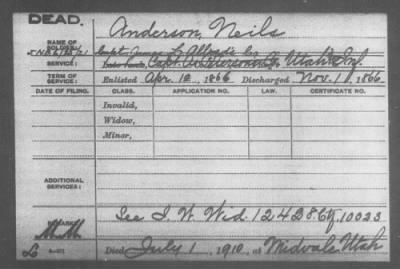 DEAD.
Anderson, Neils
NAME OF
SOLDIER:
Capt. James L Allred's Co
SERVICE:
Capt. A. Utah Inf.
TERM OF
SERVICE:
Enlisted Apr. 10, 1866 Discharged Nov. 1, 1866
DATE OF FILING. CLASS. APPLICATION NO. LAW. CERTIFICATE NO.
Invalid,
Widow,
Minor,
ADDITIONAL
SERVICES:
See I. W. Wid. 10023
M.M.
Died July 1, 1910, at Midvale Utah